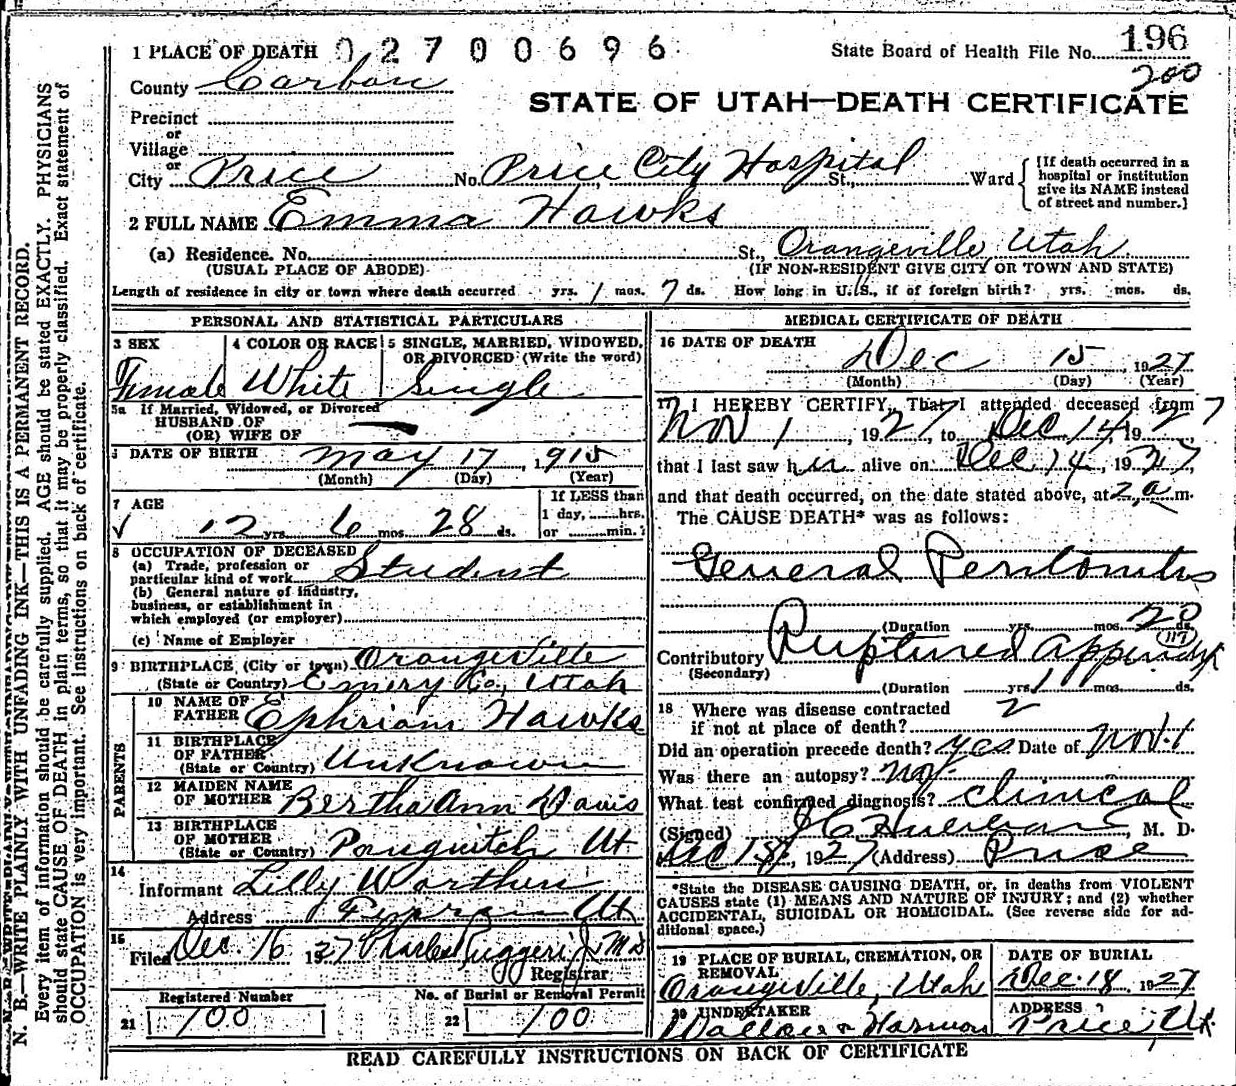 1 PLACE OF DEATH 02700696 State Board of Health File No. 196
200
County Carbon
STATE OF UTAH—DEATH CERTIFICATE
Precinct
or
Village
or
City Price No. Price City Hospital St., Ward
[If death occurred in a hospital or institution give its NAME instead of street and number.]
2 FULL NAME Emma Hawks
(a) Residence. No. St., Orangeville, Utah.
(USUAL PLACE OF ABODE) (IF NON-RESIDENT GIVE CITY OR TOWN AND STATE)
Length of residence in city or town where death occurred yrs. 1 mos. 7 ds. How long in U. S., if of foreign birth? yrs. mos. ds.
PERSONAL AND STATISTICAL PARTICULARS
3 SEX 4 COLOR OR RACE 5 SINGLE, MARRIED, WIDOWED, OR DIVORCED (Write the word)
Female White Single
5a If Married, Widowed, or Divorced
HUSBAND OF
(OR) WIFE OF
6 DATE OF BIRTH May 17, 1915
(Month) (Day) (Year)
7 AGE If LESS than
12 yrs. 6 mos. 28 ds. 1 day, hrs.
or min.?
8 OCCUPATION OF DECEASED
(a) Trade, profession or
particular kind of work Student
(b) General nature of industry,
business, or establishment in
which employed (or employer)
(c) Name of Employer
9 BIRTHPLACE (City or town) Orangeville
(State or Country) Emery Co., Utah
PARENTS
10 NAME OF
FATHER Ephriam Hawks
11 BIRTHPLACE
OF FATHER
(State or Country) Unknown
12 MAIDEN NAME
OF MOTHER Bertha Ann Davis
13 BIRTHPLACE
OF MOTHER
(State or Country) Panguitch Ut
14
Informant Lilly Worthen
Address Ut
15
Filed Dec 16 1927 Charles Ruggeri Jr MD
Registrar
Registered Number No. of Burial or Removal Permit
21 100 22 100
MEDICAL CERTIFICATE OF DEATH
16 DATE OF DEATH
Dec 15, 1927
(Month) (Day) (Year)
17 I HEREBY CERTIFY, That I attended deceased from
Nov 1, 1927, to Dec 14, 1927
that I last saw her alive on Dec 14, 1927,
and that death occurred, on the date stated above, at 2 a m.
The CAUSE DEATH* was as follows:
General Peritonitis
(Duration yrs. mos. 20 ds.
117
Contributory Ruptured Appendix
(Secondary)
(Duration yrs. 1 mos. ds.
18 Where was disease contracted
if not at place of death?
Did an operation precede death? yes Date of Nov. 1
Was there an autopsy? no
What test confirmed diagnosis? clinical
(Signed), M. D.
Dec 15, 1927 (Address) Price
*State the DISEASE CAUSING DEATH, or, in deaths from VIOLENT
CAUSES state (1) MEANS AND NATURE OF INJURY; and (2) whether
ACCIDENTAL, SUICIDAL OR HOMICIDAL. (See reverse side for ad-
ditional space.)
19 PLACE OF BURIAL, CREMATION, OR REMOVAL DATE OF BURIAL
Orangeville, Utah Dec. 18, 1927
20 UNDERTAKER ADDRESS
Wallace & Harmon Price, Ut.
READ CAREFULLY INSTRUCTIONS ON BACK OF CERTIFICATE
N. B.—WRITE PLAINLY WITH UNFADING INK—THIS IS A PERMANENT RECORD.
Every item of information should be carefully supplied. AGE should be stated EXACTLY. PHYSICIANS
should state CAUSE OF DEATH in plain terms, so that it may be properly classified. Exact statement of
OCCUPATION is very important. See instructions on back of certificate.